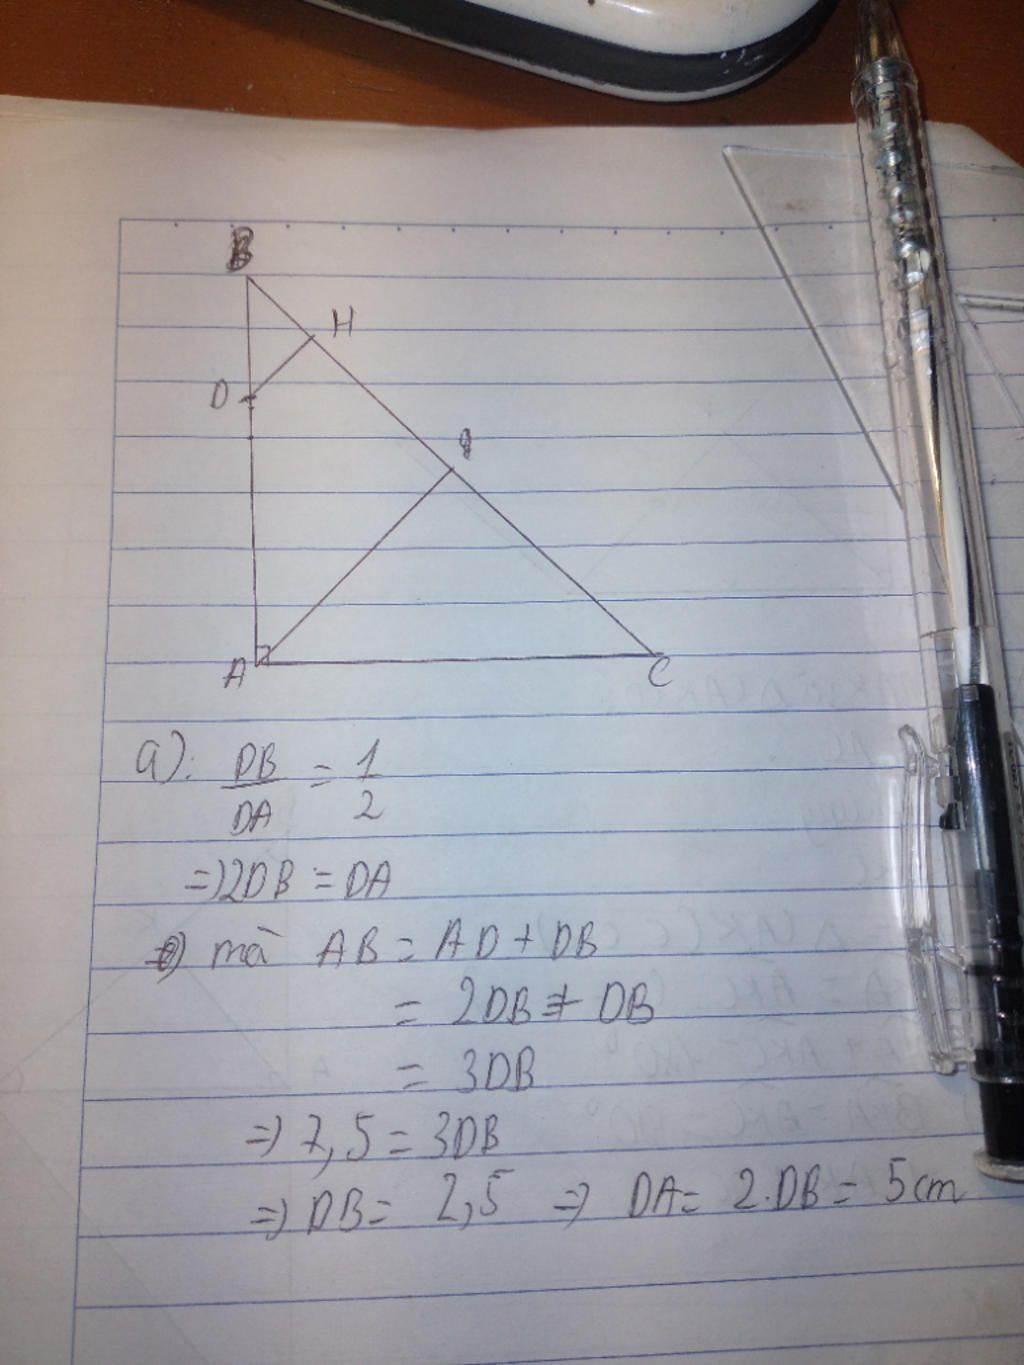 B
H
D
A
C
a): DB/DA = 1/2
=) 2DB = DA
mà AB = AD + DB
= 2DB + DB
= 3DB
=) 7,5 = 3DB
=) DB = 2,5 =) DA = 2.DB = 5cm